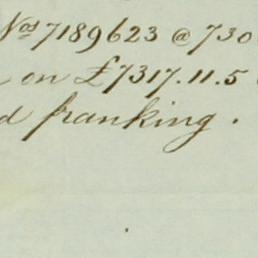 Nos 7189623 @ 730
on £7317.11.5
d franking.